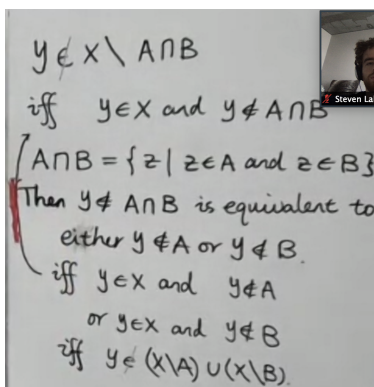 y ∉ X \ A∩B
iff y∈X and y∉A∩B
A∩B = {z | z∈A and z∈B}
Then y∉ A∩B is equivalent to
either y∉A or y∉B.
iff y∈X and y∉A
or y∈X and y∉B
iff y∈(X\A)∪(X\B).
Steven La